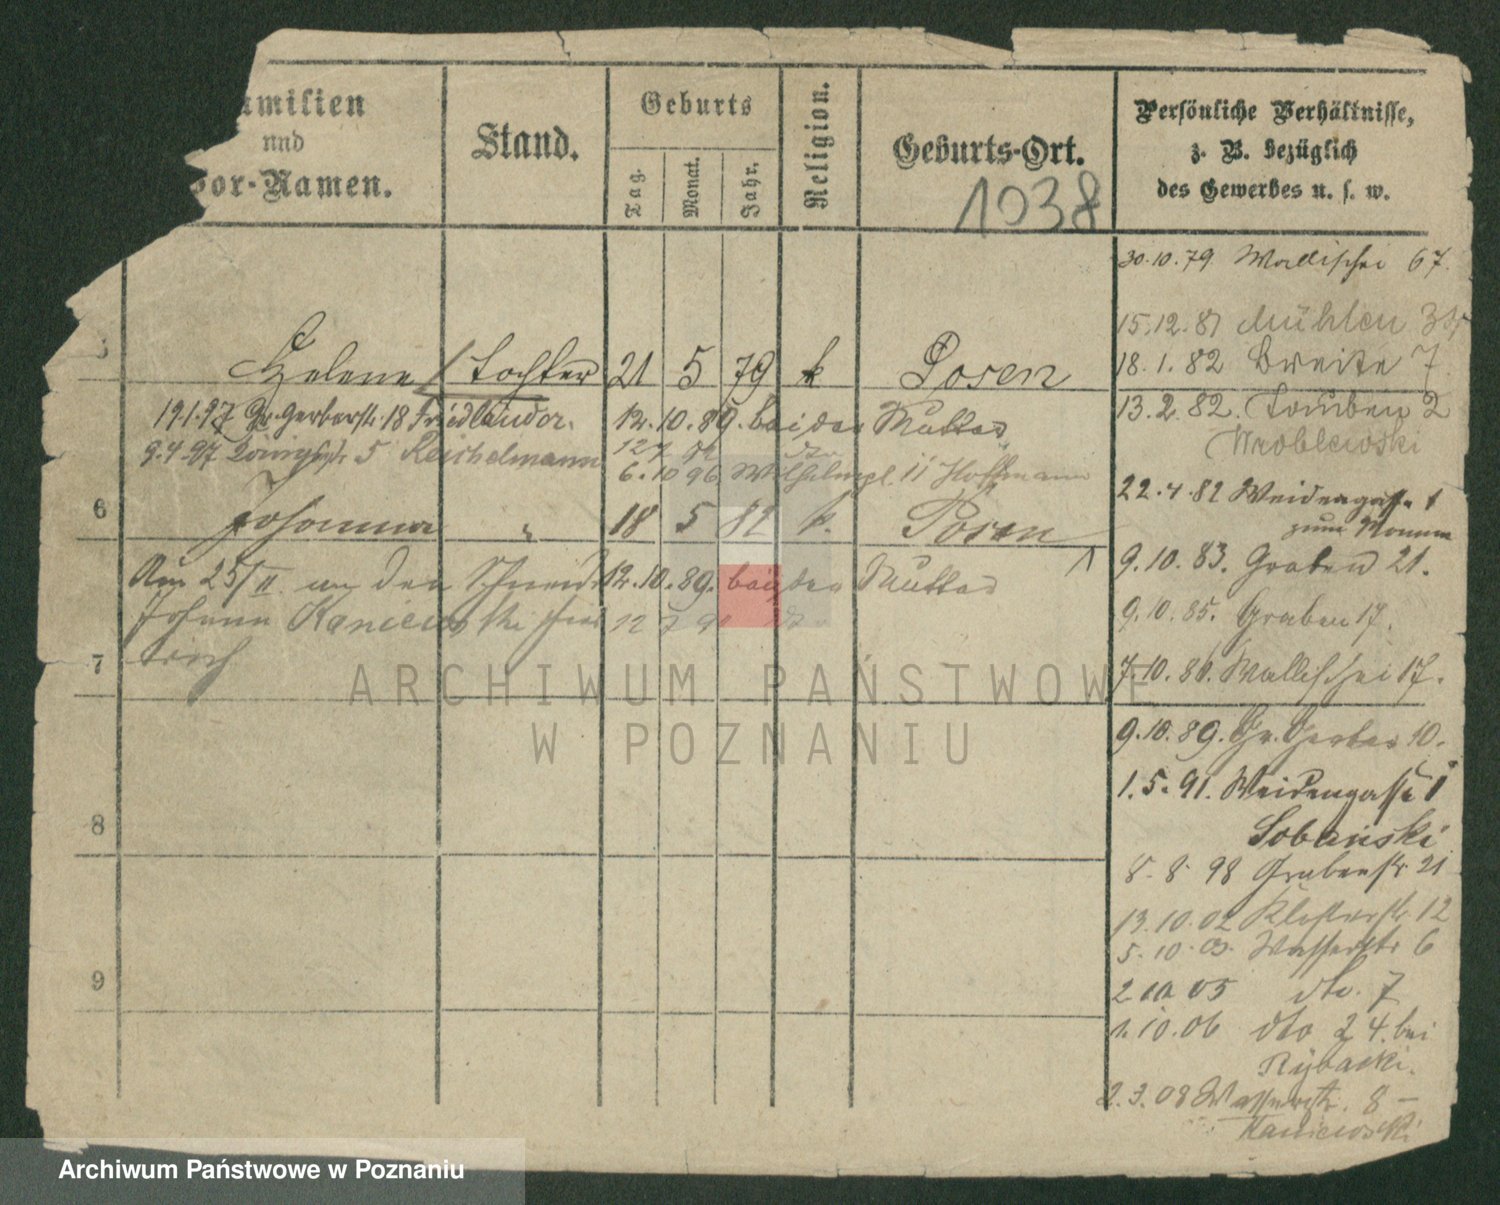 amilien
und
or-Namen.
Stand.
Geburts
Tag.
Monat.
Jahr.
Religion.
Geburts-Ort.
1038
Persönliche Verhältnisse,
z. B. bezüglich
des Gewerbes u. s. w.
30.10.79 Wallischei 67.
15.12.81 Mühlen
18.1.82 Breite 7
5 Helene / Tochter 21 5 79 k Posen
13.2.82. Tauben 2
Wroblewski
19.1.97 Gr. Gerberstr. 18 Friedländer. 12.10.89. bei der Mutter
9.4.97 Königstr 5 Reichelmann
6.10 96 Wilhelmspl. 11 Hoffmann
22.4.82 Weidengasse 1
6 Johanna " 18 5 82 k. Posen
9.10.83. Graben 21.
Am 25/II an den Schneider 12.10.89. bei der Mutter
Johann Kaniewski
9.10.85. Graben 17.
7
7.10.86. Wallischei 17.
9.10.89. Gr. Gerber 10.
1.5.91. Weidengasse 1
Sobański
8
8.8 98 Grabenstr 21
13.10.02 Klosterstr. 12
5.10.03. Wasserstr 6
9
05 dto. 7
1.10.06 dto 24. bei
Rybacki.
2.3.08 Wasserstr. 8 –
Kaniewski
ARCHIWUM PAŃSTWOWE
W POZNANIU
Archiwum Państwowe w Poznaniu